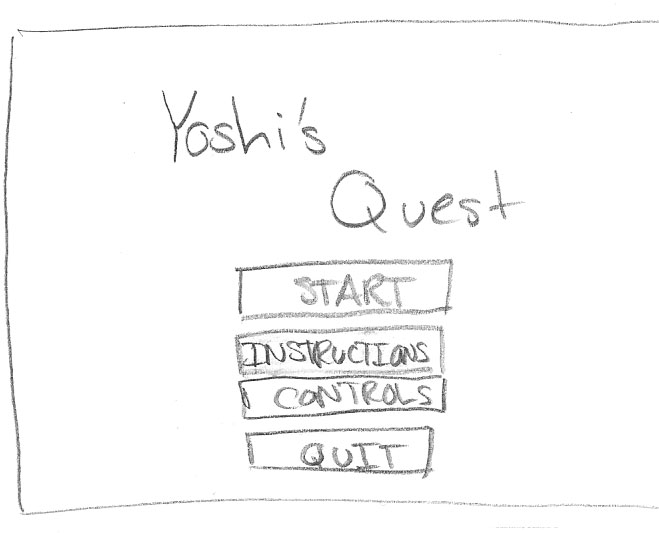 Yoshi's
Quest
START
INSTRUCTIONS
CONTROLS
QUIT